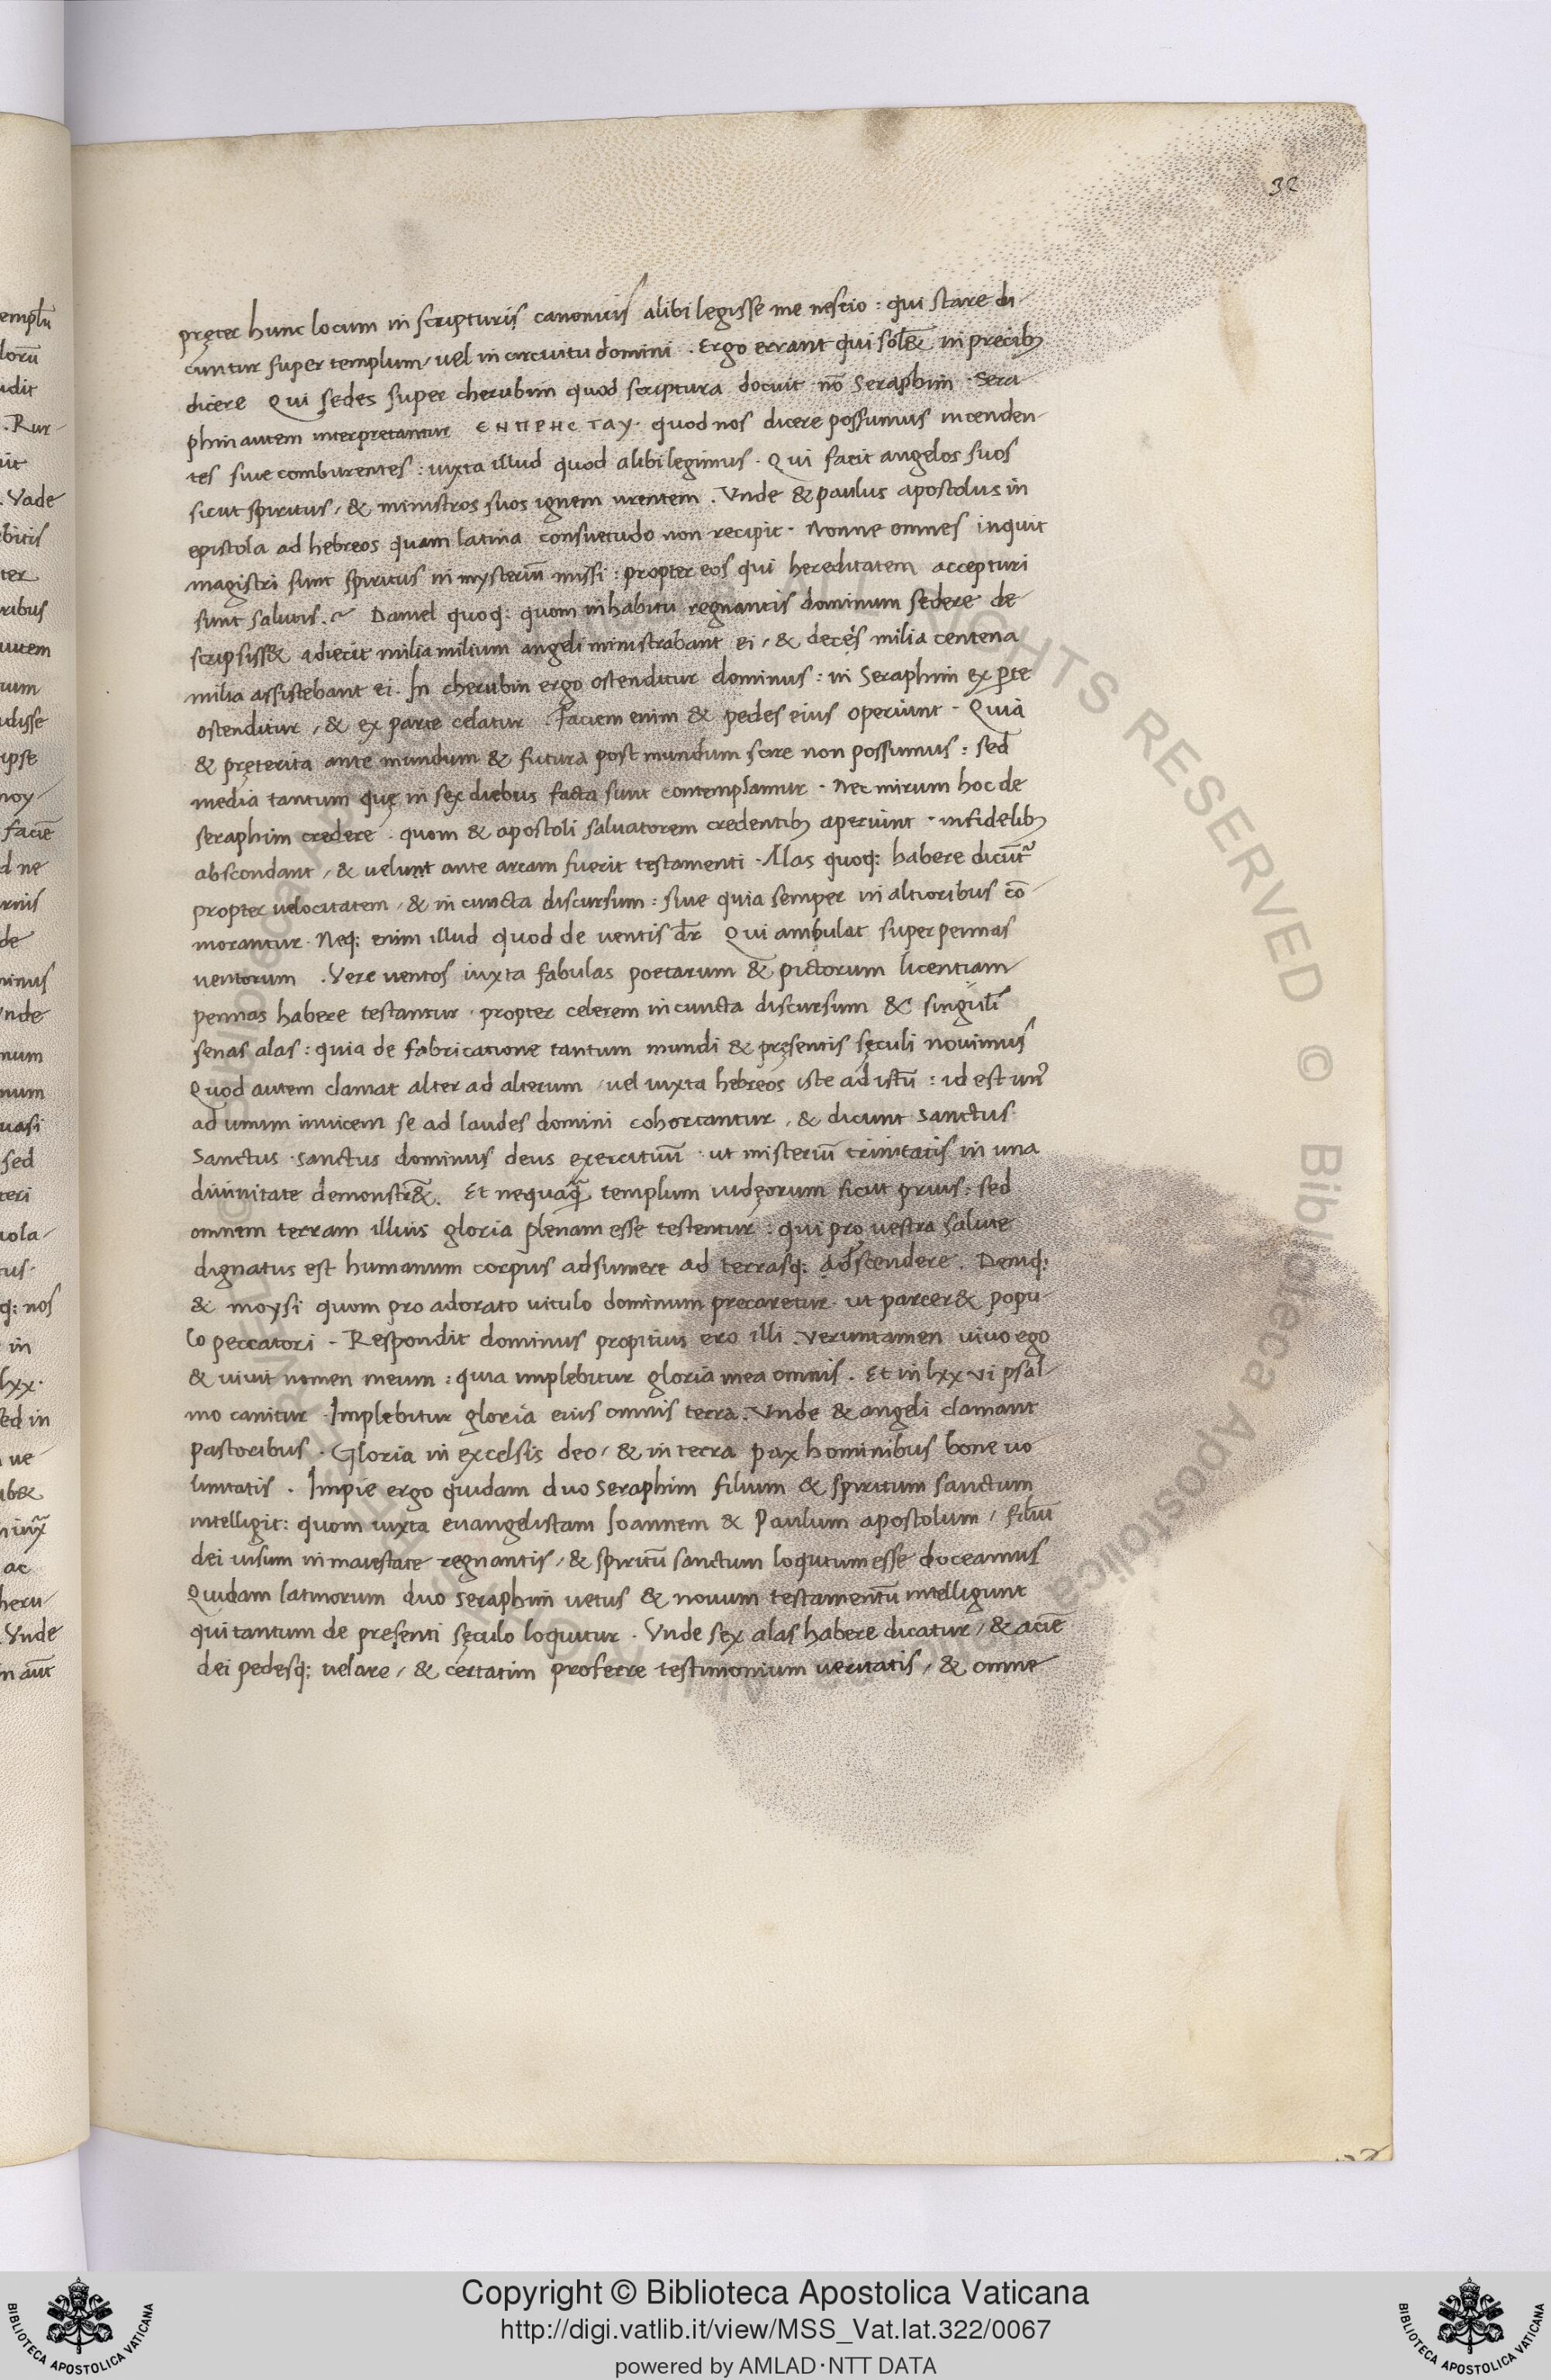 32
pręter hunc locum in scripturis canonicis alibi legisse me nescio : qui stare di-
cuntur super templum, vel in circuitu domini . Ergo errant qui sol&̄ in precib⁊
dicere Qui sedes super cherubim quod scriptura docuit nō Seraphim . Sera-
phin autem interpretantur ЄΗΠΡΗϹΤΑΥ . quod nos dicere possumus incenden-
tes siue comburentes : iuxta illud quod alibi legimus . Qui facit angelos suos
sicut spiritus, & ministros suos ignem urentem . Vnde & paulus apostolus in
epistola ad hebreos quam latina consuetudo non recipit . Nonne omnes inquit
magistri sunt spiritus in mysteriū missi : propter eos qui hereditatem accepturi
sunt salutis . Daniel quoq; quom in habitu regnantis dominum sedere de-
scripsiss& adiecit milia milium angeli ministrabant ei, & decēs milia centena
milia assistebant ei . In cherubin ergo ostenditur dominus : in Seraphin ex pte
ostenditur, & ex parte celatur . Faciem enim & pedes eius operiunt . Quia
& pręterita ante mundum & futura post mundum scire non possumus : sed
media tantum quę in sex diebus facta sunt contemplamur . Nec mirum hoc de
seraphim credere . quom & apostoli saluatorem credentib⁊ aperiunt . infidelib⁊
abscondant, & uelunt ante arcam fuerit testamenti . Alas quoq; habere dicūt᷑
propter uelocitatem, & in cuncta discursum : siue quia semper in altioribus cō-
morantur . Neq; enim illud quod de uentis dr̄ Qui ambulat super pennas
uentorum . Vere uentos iuxta fabulas poetarum & pictorum licentiam
pennas habere testantur . propter celerem in cuncta discursum & singuli
senas alas : quia de fabricatione tantum mundi & pręsentis sęculi nouimus
Quod autem clamat alter ad alterum, uel iuxta hebreos iste ad istū : id est un᷒
ad unum inuicem se ad laudes domini cohortantur, & dicunt Sanctus
Sanctus . sanctus dominus deus exercituū . ut misteriū trinitatis in una
diuinitate demonstr&̄ . Et nequaq̄ templum iudęorum sicut prius : sed
omnem terram illius gloria plenam esse testentur : qui pro vestra salute
dignatus est humanum corpus adsumere ad terrasq; adscendere . Deniq;
& moysi quom pro adorato uitulo dominum precaretur . ut parcer& popu-
lo peccatori . Respondit dominus propitius ero illi . veruntamen uiuo ego
& uiuit nomen meum : quia implebitur gloria mea omnis . Et in lxxvi psal-
mo canitur . Implebitur gloria eius omnis terra . Vnde & angeli clamant
pastoribus . Gloria in excelsis deo, & in terra pax hominibus bone uo
luntatis . Impie ergo quidam duo Seraphim filium & spiritum sanctum
intelligit : quom iuxta euangelistam Ioannem & Paulum apostolum, filiū
dei uisum in maiestate regnantis, & spiritū sanctum loqutum esse doceamus
Quidam latinorum duo seraphim uetus & nouum testamentū intelligunt
qui tantum de presenti sęculo loquitur . Vnde sex alas habere dicatur, & aciē
dei pedesq; uelare, & certatim proferre testimonium ueritatis, & omne
Copyright © Biblioteca Apostolica Vaticana
http://digi.vatlib.it/view/MSS_Vat.lat.322/0067
powered by AMLAD·NTT DATA